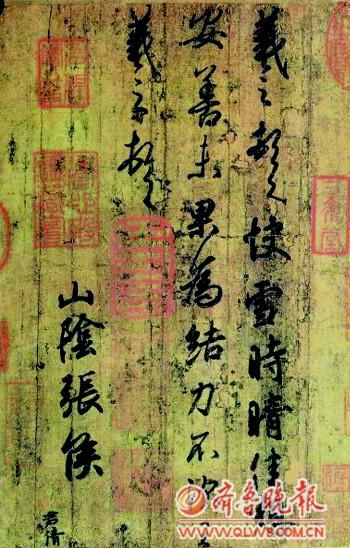 羲之頓首快雪時晴佳想
安善未果為結力不次王
羲之頓首
山陰張侯
君倩
齐鲁晚报
WWW.QLWB.COM.CN